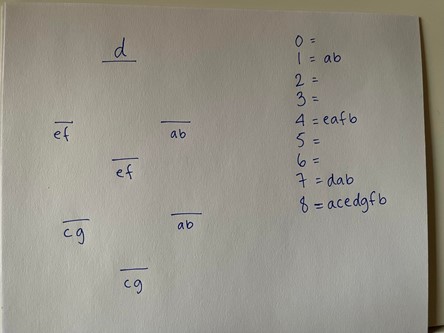 d
ef
ab
ef
cg
ab
cg
0 =
1 = ab
2 =
3 =
4 = eafb
5 =
6 =
7 = dab
8 = acedgfb